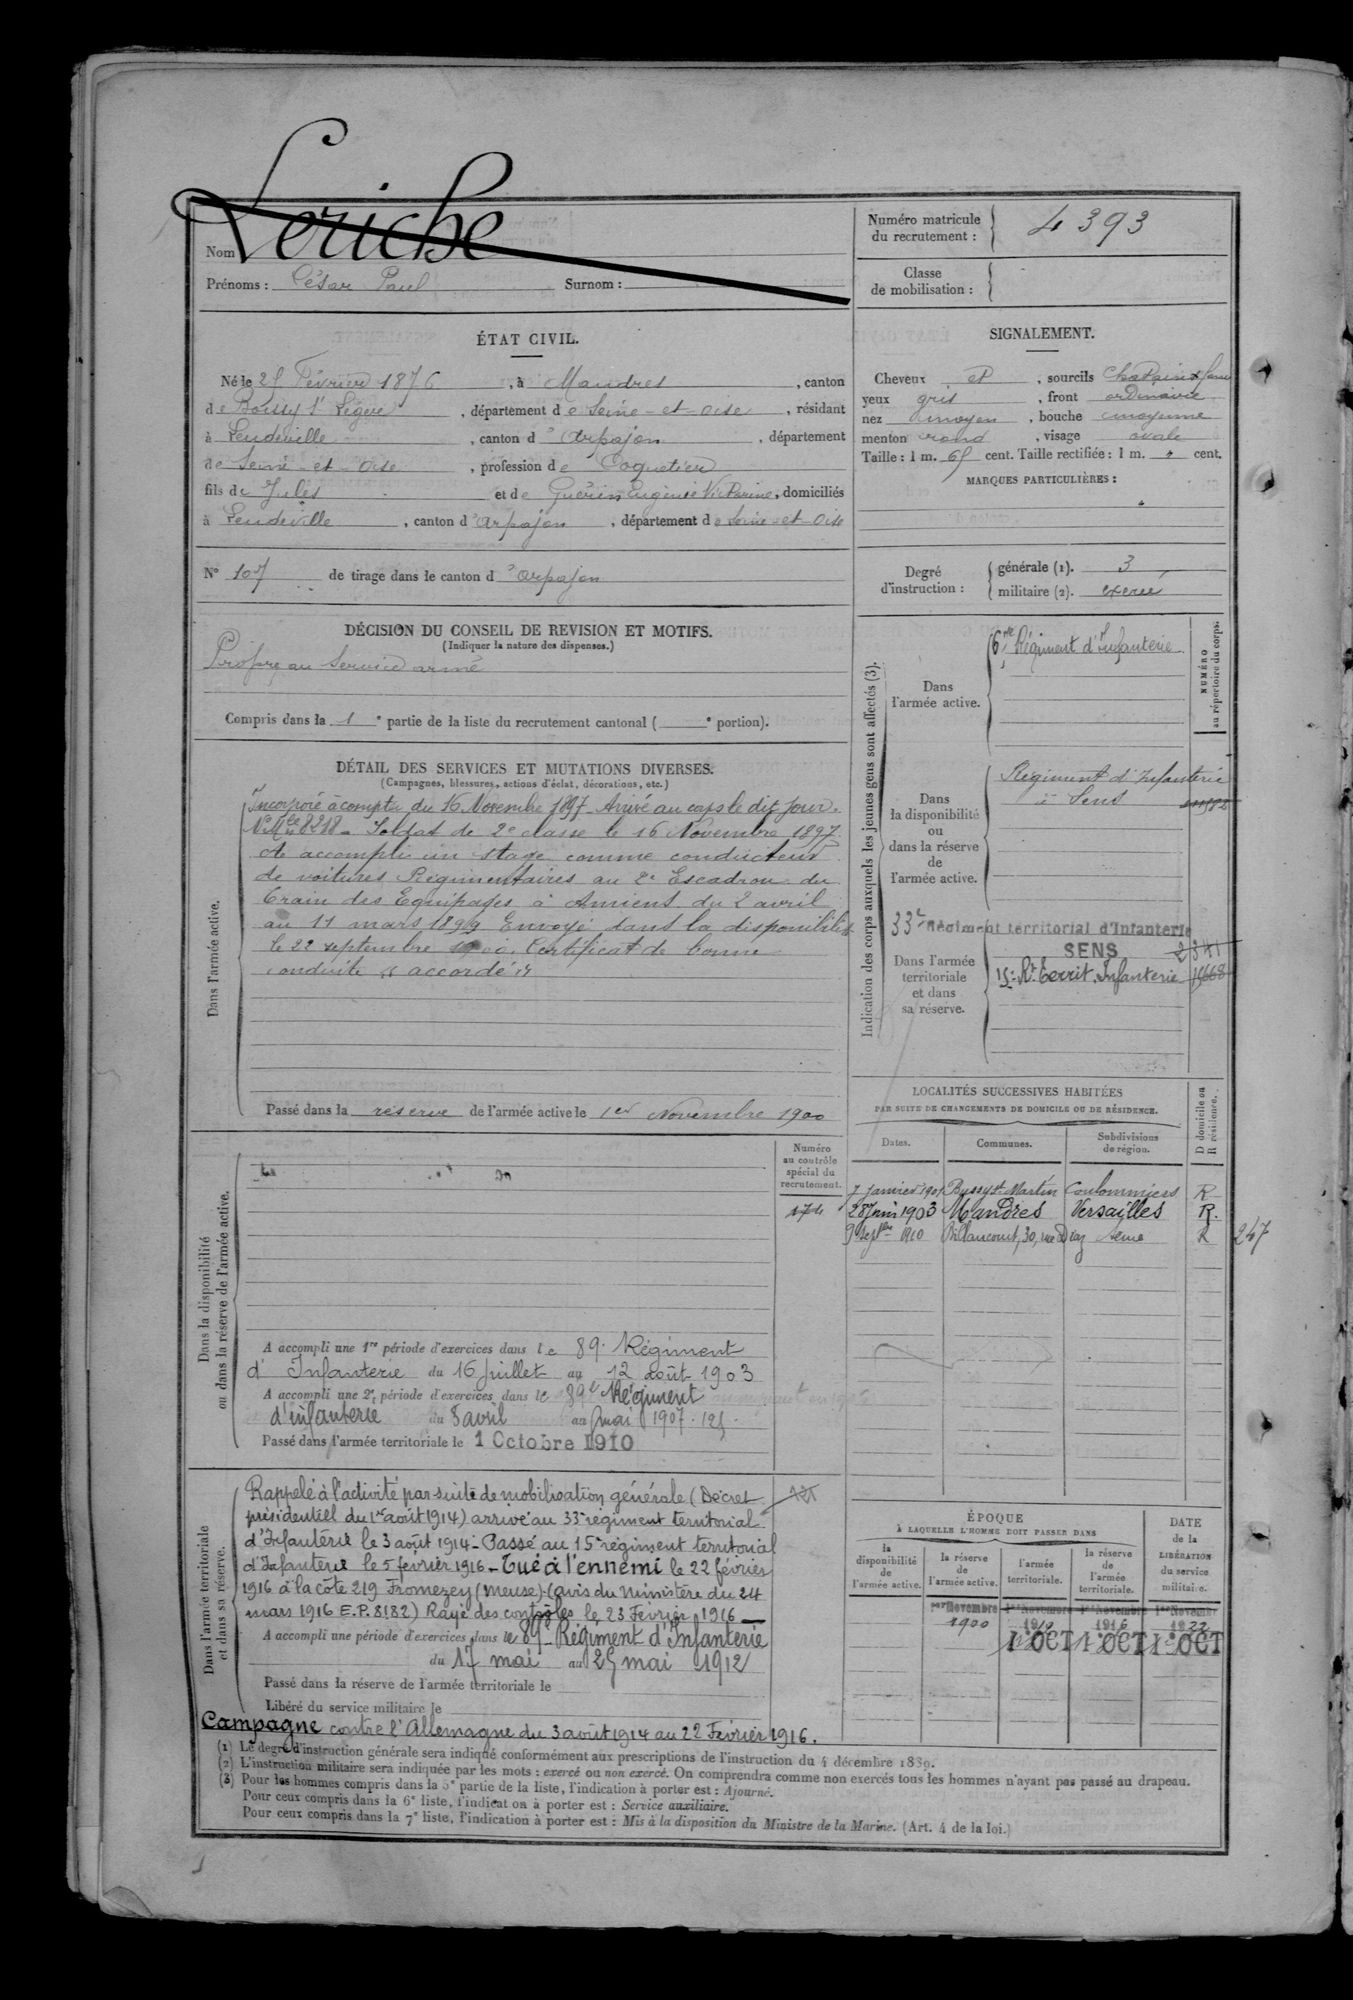 Nom Leriche
Prénoms : César Paul Surnom :
Numéro matricule du recrutement : 4393
Classe de mobilisation :
ÉTAT CIVIL.
Né le 25 Février 1876, à Mandres, canton
de Boissy St Léger, département de Seine-et-Oise, résidant
à Leudeville, canton d'Arpajon, département
de Seine-et-Oise, profession de Coquetier
fils de Jules et de Guérin Eugénie Victorine, domiciliés
à Leudeville, canton d'Arpajon, département de Seine-et-Oise
N° 107 de tirage dans le canton d'Arpajon
SIGNALEMENT.
Cheveux et, sourcils Chatains
yeux gris, front ordinaire
nez moyen, bouche moyenne
menton rond, visage ovale
Taille : 1 m. 65 cent. Taille rectifiée : 1 m. cent.
MARQUES PARTICULIÈRES :
Degré d'instruction : générale (1). 3
militaire (2). exercé
DÉCISION DU CONSEIL DE REVISION ET MOTIFS.
(Indiquer la nature des dispenses.)
Propre au Service armé
Compris dans la 1e partie de la liste du recrutement cantonal ( e portion).
DÉTAIL DES SERVICES ET MUTATIONS DIVERSES.
(Campagnes, blessures, actions d'éclat, décorations, etc.)
Dans l'armée active.
Incorporé à compter du 16 Novembre 1897. Arrivé au corps le dit jour.
N° Mle 8218. Soldat de 2e classe le 16 Novembre 1897.
A accompli un stage comme conducteur
de voitures Régimentaires au 2e Escadron du
Train des Equipages à Amiens du 2 avril
au 11 mars 1899 Envoyé dans la disponibilité
le 22 septembre 1900. Certificat de bonne
conduite "accordé"
Passé dans la réserve de l'armée active le 1er Novembre 1900
Indication des corps auxquels les jeunes gens sont affectés (3).
NUMÉRO au répertoire du corps.
Dans l'armée active.
Régiment d'Infanterie
Dans la disponibilité ou dans la réserve de l'armée active.
Régiment d'Infanterie
à Sens
Dans l'armée territoriale et dans sa réserve.
33e Régiment territorial d'Infanterie
SENS 2341
15e Rt Territ. Infanterie
LOCALITÉS SUCCESSIVES HABITÉES
PAR SUITE DE CHANGEMENTS DE DOMICILE OU DE RÉSIDENCE.
Dates. Communes. Subdivisions de région. D domicile ou R résidence.
7 Janvier 1901 Bussy St Martin Coulommiers R
28 Juin 1903 Mandres Versailles R.
9 Septbre 1910 Billancourt, 30, rue Diaz Seine R 247
Dans la disponibilité ou dans la réserve de l'armée active.
Numéro au contrôle spécial du recrutement.
174
A accompli une 1re période d'exercices dans le 89e Régiment
d'Infanterie du 16 juillet au 12 août 1903
A accompli une 2e période d'exercices dans le 89e Régiment
d'infanterie du 8 avril au mai 1907.
Passé dans l'armée territoriale le 1 Octobre 1910
Dans l'armée territoriale et dans sa réserve.
Rappelé à l'activité par suite de mobilisation générale (Décret
présidentiel du 1er août 1914) arrivé au 33e régiment territorial
d'Infanterie le 3 août 1914 - Passé au 15e régiment territorial
d'Infanterie le 5 février 1916 - Tué à l'ennemi le 22 février
1916 à la côte 219 Fromezey (Meuse) (avis du Ministère du 24
mars 1916 E.P. 8182) Rayé des contrôles le 23 Février 1916
A accompli une période d'exercices dans le 89e Régiment d'Infanterie
du 17 mai au 25 mai 1912
Passé dans la réserve de l'armée territoriale le
Libéré du service militaire le
Campagne contre l'Allemagne du 3 août 1914 au 22 Février 1916.
ÉPOQUE
À LAQUELLE L'HOMME DOIT PASSER DANS
la disponibilité de l'armée active. la réserve de l'armée active. l'armée territoriale. la réserve de l'armée territoriale.
DATE de la LIBÉRATION du service militaire.
1er Novembre 1er Novembre 1er Novembre 1er Novembre
1900 1910 1916 1922
1 OCT 1 OCT 1 OCT
(1) Le degré d'instruction générale sera indiqué conformément aux prescriptions de l'instruction du 4 décembre 1889.
(2) L'instruction militaire sera indiquée par les mots : exercé ou non exercé. On comprendra comme non exercés tous les hommes n'ayant pas passé au drapeau.
(3) Pour les hommes compris dans la 5e partie de la liste, l'indication à porter est : Ajourné.
Pour ceux compris dans la 6e liste, l'indication à porter est : Service auxiliaire.
Pour ceux compris dans la 7e liste, l'indication à porter est : Mis à la disposition du Ministre de la Marine. (Art. 4 de la loi.)